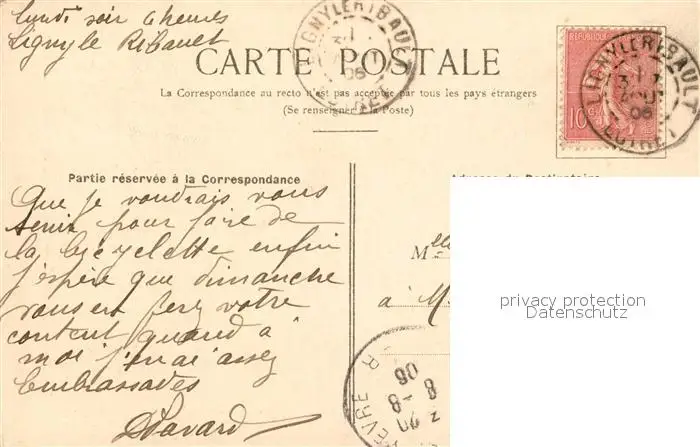 Lundi soir 6 heures
Ligny le Ribault
CARTE POSTALE
La Correspondance au recto n'est pas acceptée par tous les pays étrangers
(Se renseigner à la Poste)
LIGNY LE RIBAULT
06
LOIRET
RÉPUBLIQUE
10c
LIGNY LE RIBAULT
06
LOIRET
Partie réservée à la Correspondance
Adresse du Destinataire
Que je voudrais vous
tenir pour faire de
la bicyclette enfin
j'espère que dimanche
vous en ferez votre
content quand à
moi j'en ai assez
Embrassades
Mlle
à M
privacy protection
Datenschutz